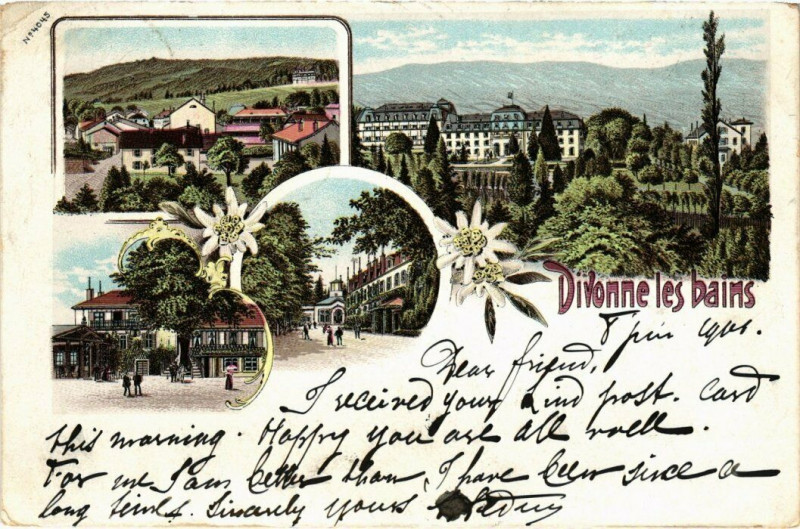 Nº 4045
Divonne les bains
8 juin 1901.
Dear friend,
I received your kind post. Card
this morning. Happy you are all well.
For me I am better than I have been since a
long time. Sincerely yours